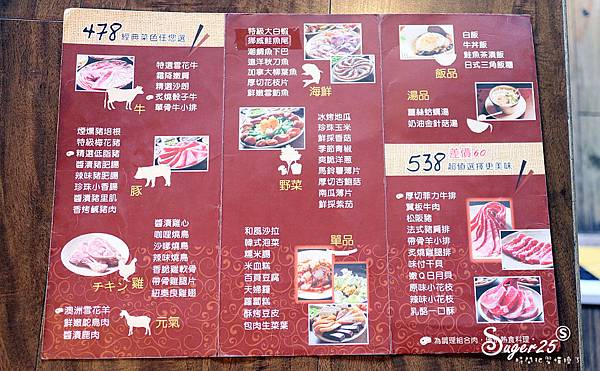 478 經典菜色任您選
特選雪花牛
霜降嫩肩
精選沙朗
炙燒骰子牛
單骨牛小排
牛
煙燻豬培根
特級梅花豬
精選低脂豬
醬漬豬肥腸
辣味豬肥腸
珍珠小香腸
醬漬豬里肌
香烤鹹豬肉
豚
醬漬雞心
咖哩燒鳥
沙嗲燒鳥
辣味燒鳥
香脆雞軟骨
帶骨雞腿片
紐奧良雞翅
チキン 雞
澳洲雪花羊
鮮嫩鴕鳥肉
醬漬鹿肉
元氣
特級大白蝦
挪威鮭魚尾
潮鯛魚下巴
遠洋秋刀魚
加拿大柳葉魚
厚切花枝片
鮮嫩雪魴魚
海鮮
冰烤地瓜
珍珠玉米
鮮採香菇
季節青椒
爽脆洋蔥
馬鈴薯薄片
厚切杏鮑菇
南瓜薄片
鮮採紫茄
野菜
和風沙拉
韓式泡菜
糯米腸
米血糕
百頁豆腐
天婦羅
蘿蔔糕
酥烤豆皮
包肉生菜葉
單品
白飯
牛丼飯
鮭魚茶漬飯
日式三角飯糰
飯品
湯品
薑絲蛤蠣湯
奶油金針菇湯
538 差價60
超值選擇更美味
厚切菲力牛排
翼板牛肉
松阪豬
法式豬肩排
帶骨羊小排
炙燒雞腿排
味付干貝
嫩Q日月貝
原味小花枝
辣味小花枝
乳酪一口酥
為調理組合肉，
熟食料理。
Sugar25